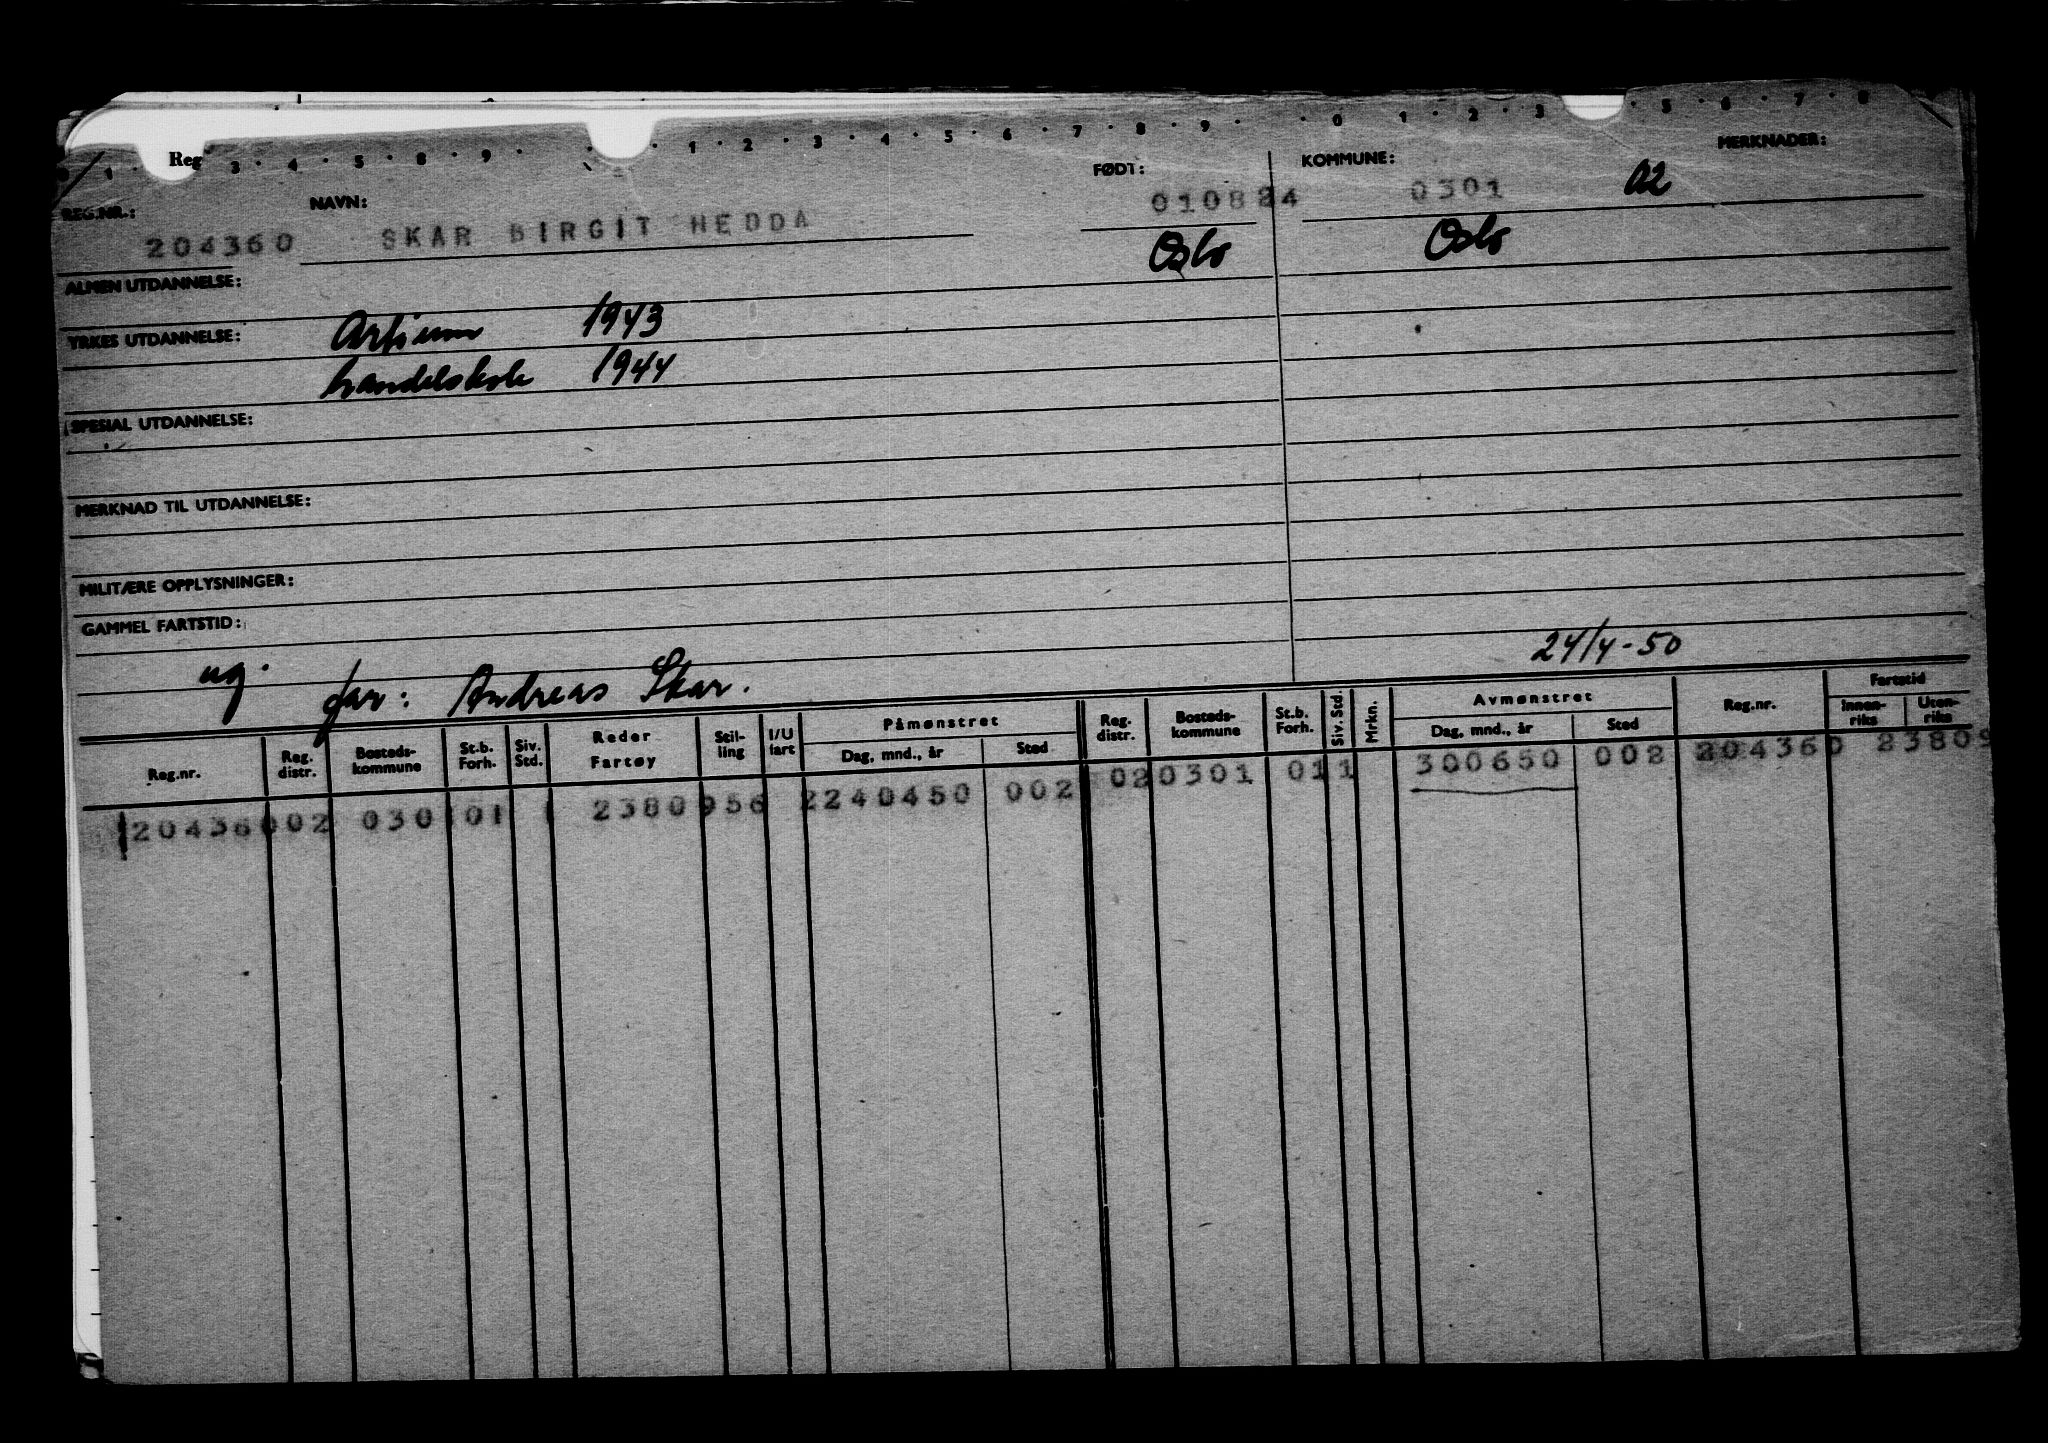 0 · 1 · Reg 3 · 4 · 5 · 8 · 9 · · 1 · 2 · 3 · 4 · 5 · 6 · 7 · 8 · 9 · · 0 1 · 2 · 3 · 5 · 6 · 7 · 8
REG.NR.: NAVN: FØDT: KOMMUNE: MERKNADER:
204360 SKAR BIRGIT HEDDA 010824 0301 02
Oslo Oslo
ALMEN UTDANNELSE:
YRKES UTDANNELSE: Artium 1943
handelskole 1944
SPESIAL UTDANNELSE:
MERKNAD TIL UTDANNELSE:
MILITÆRE OPPLYSNINGER:
GAMMEL FARTSTID:
ug. far: Andreas Skar. 24/4-50
Reg.nr. Reg. distr. Bosteds-kommune St.b. Forh. Siv. Std. Reder Fartøy Stil-ling I/U fart Påmønstret Dag, mnd., år Sted Reg. distr. Bosteds-kommune St.b. Forh. Siv. Std. Mrkn. Avmønstret Dag, mnd., år Sted Reg.nr. Fartstid Innen-riks Uten-riks
204360 02 0301 01 1 23809 56 2 240450 002 02 0301 01 1 300650 002 204360 23809